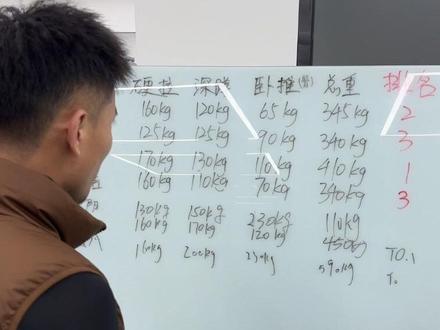 硬拉 深蹲 卧推(暂) 总重 排名
160kg 120kg 65kg 345kg 2
125kg 125kg 90kg 340kg 3
170kg 130kg 110kg 410kg 1
160kg 110kg 70kg 340kg 3
130kg 150kg 230kg 110kg
160kg 170kg 120kg 450kg
160kg 200kg 230kg 590kg T0.1
T0